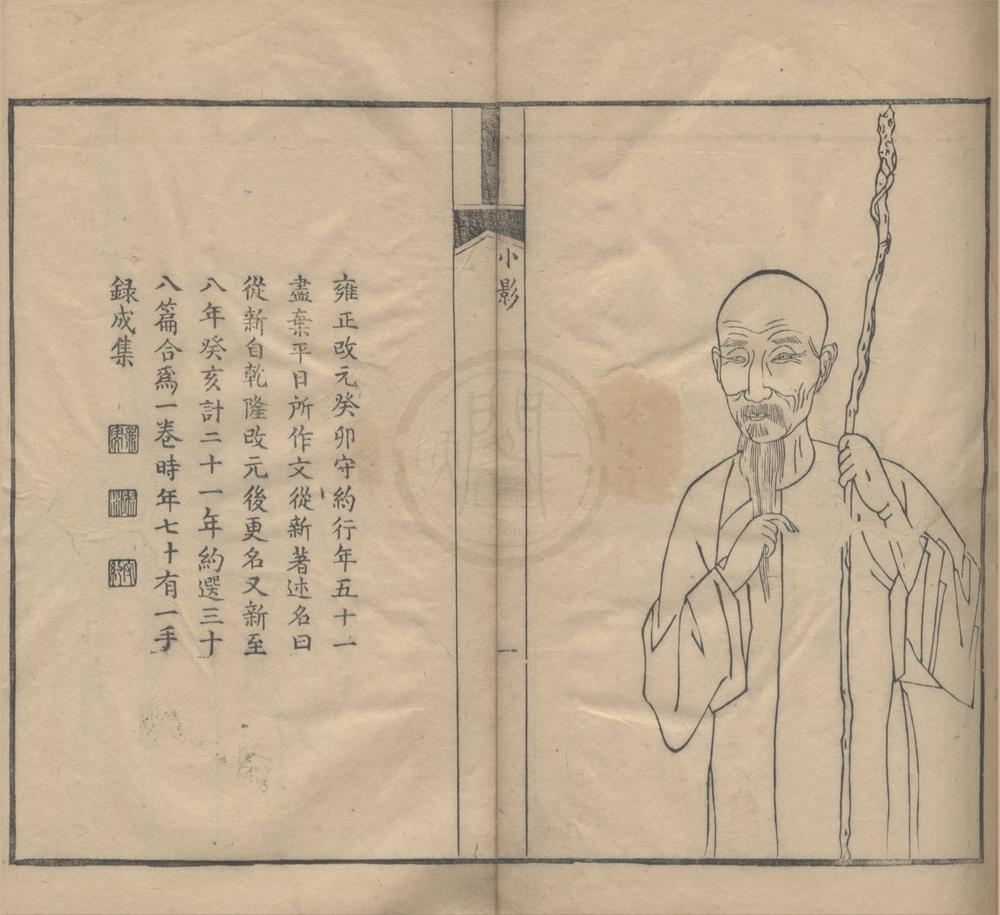 小影
一
雍正改元癸卯守約行年五十一
盡棄平日所作文從新著述名曰
從新自乾隆改元後更名又新至
八年癸亥計二十一年約選三十
八篇合爲一卷時年七十有一手
録成集